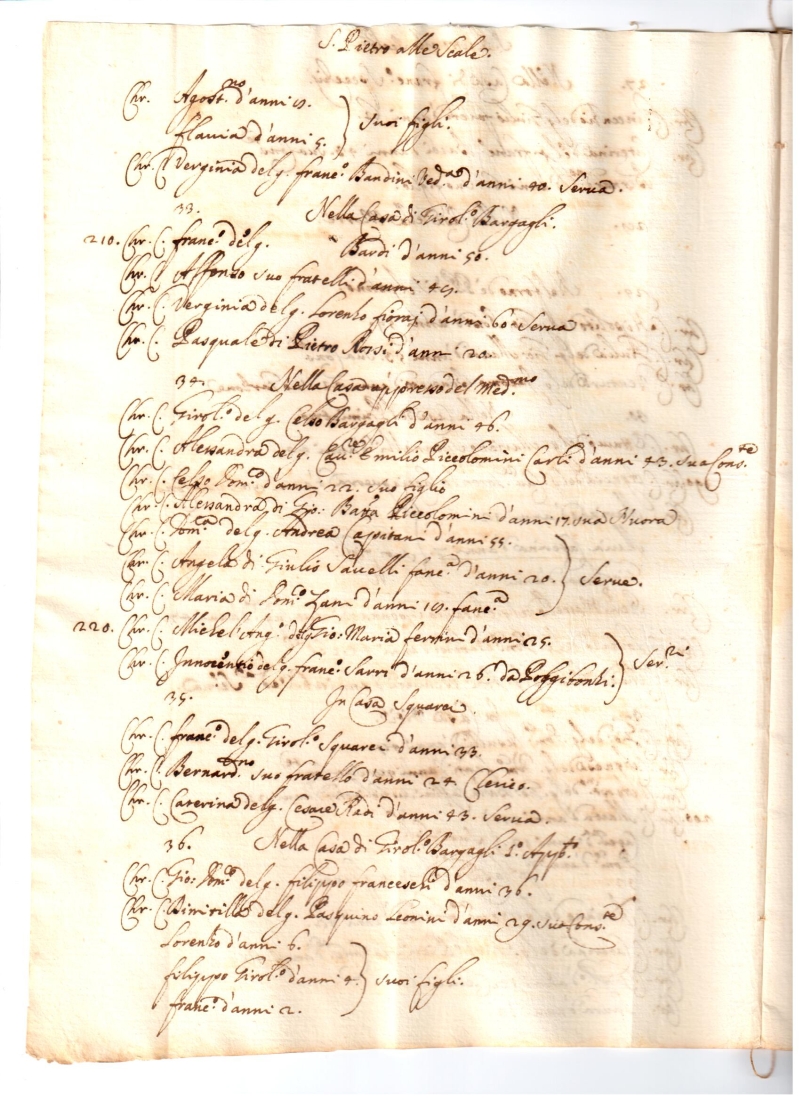 S. Pietro alle Scale.
Chr. Agost.no d'anni 9.
Flavia d'anni 5. } suoi figli.
Chr. C. Verginia del q. Franc.o Bandini Ved.a d'anni 40. Serva.
33. Nella Casa di Girol.o Bargagli.
210. Chr. C. Franc.o del q. Bardi d'anni 50.
Chr. C. Alfonso suo fratello d'anni 49.
Chr. C. Verginia del q. Lorenzo d'anni 60 Serva
Chr. C. Pasquale di Pietro Rossi d'ann 20.
34. Nella Casa appresso del Med.mo
Chr. C. Girol.o del q. Celso Bargagli d'anni 46.
Chr. C. Alessandra del q. Cau.re Emilio Piccolomini Carli d'anni 43. sua Cons.te
Chr. C. Celso Dom.co d'anni 22. suo figlio
Chr. C. Alessandra di Gio: Batta Piccolomini d'anni 17. sua Nuora
Chr. C. Dom.ca del q. Andrea Capitani d'anni 55.
Chr. C. Angela di Giulio Savelli fanc.a d'anni 20. } Serve.
Chr. C. Maria di Dom.co Zani d'anni 19. fanc.a
220. Chr. C. Michel Ang.o del q. Gio: Maria d'anni 25.
Chr. C. Innocentio del q. Franc.o Sarri d'anni 26. da Poggibonzi. } Ser.ri
35. In Casa Squarci.
Chr. C. Franc.o del q. Girol.o Squarci d'anni 33.
Chr. C. Bernard.no suo fratello d'anni 24 Clerico.
Chr. C. Caterina del q. Cesare Radi d'anni 43. Serva.
36. Nella Casa di Girol.o Bargagli 1.o App.to
Chr. C. Gio: Dom.co del q. Filippo Franceschi d'anni 36.
Chr. C. del q. Pasquino Leonini d'anni 29. sua Cons.te
Lorenzo d'anni 6.
Filippo Girol.o d'anni 4. } suoi figli.
Franc.o d'anni 2.